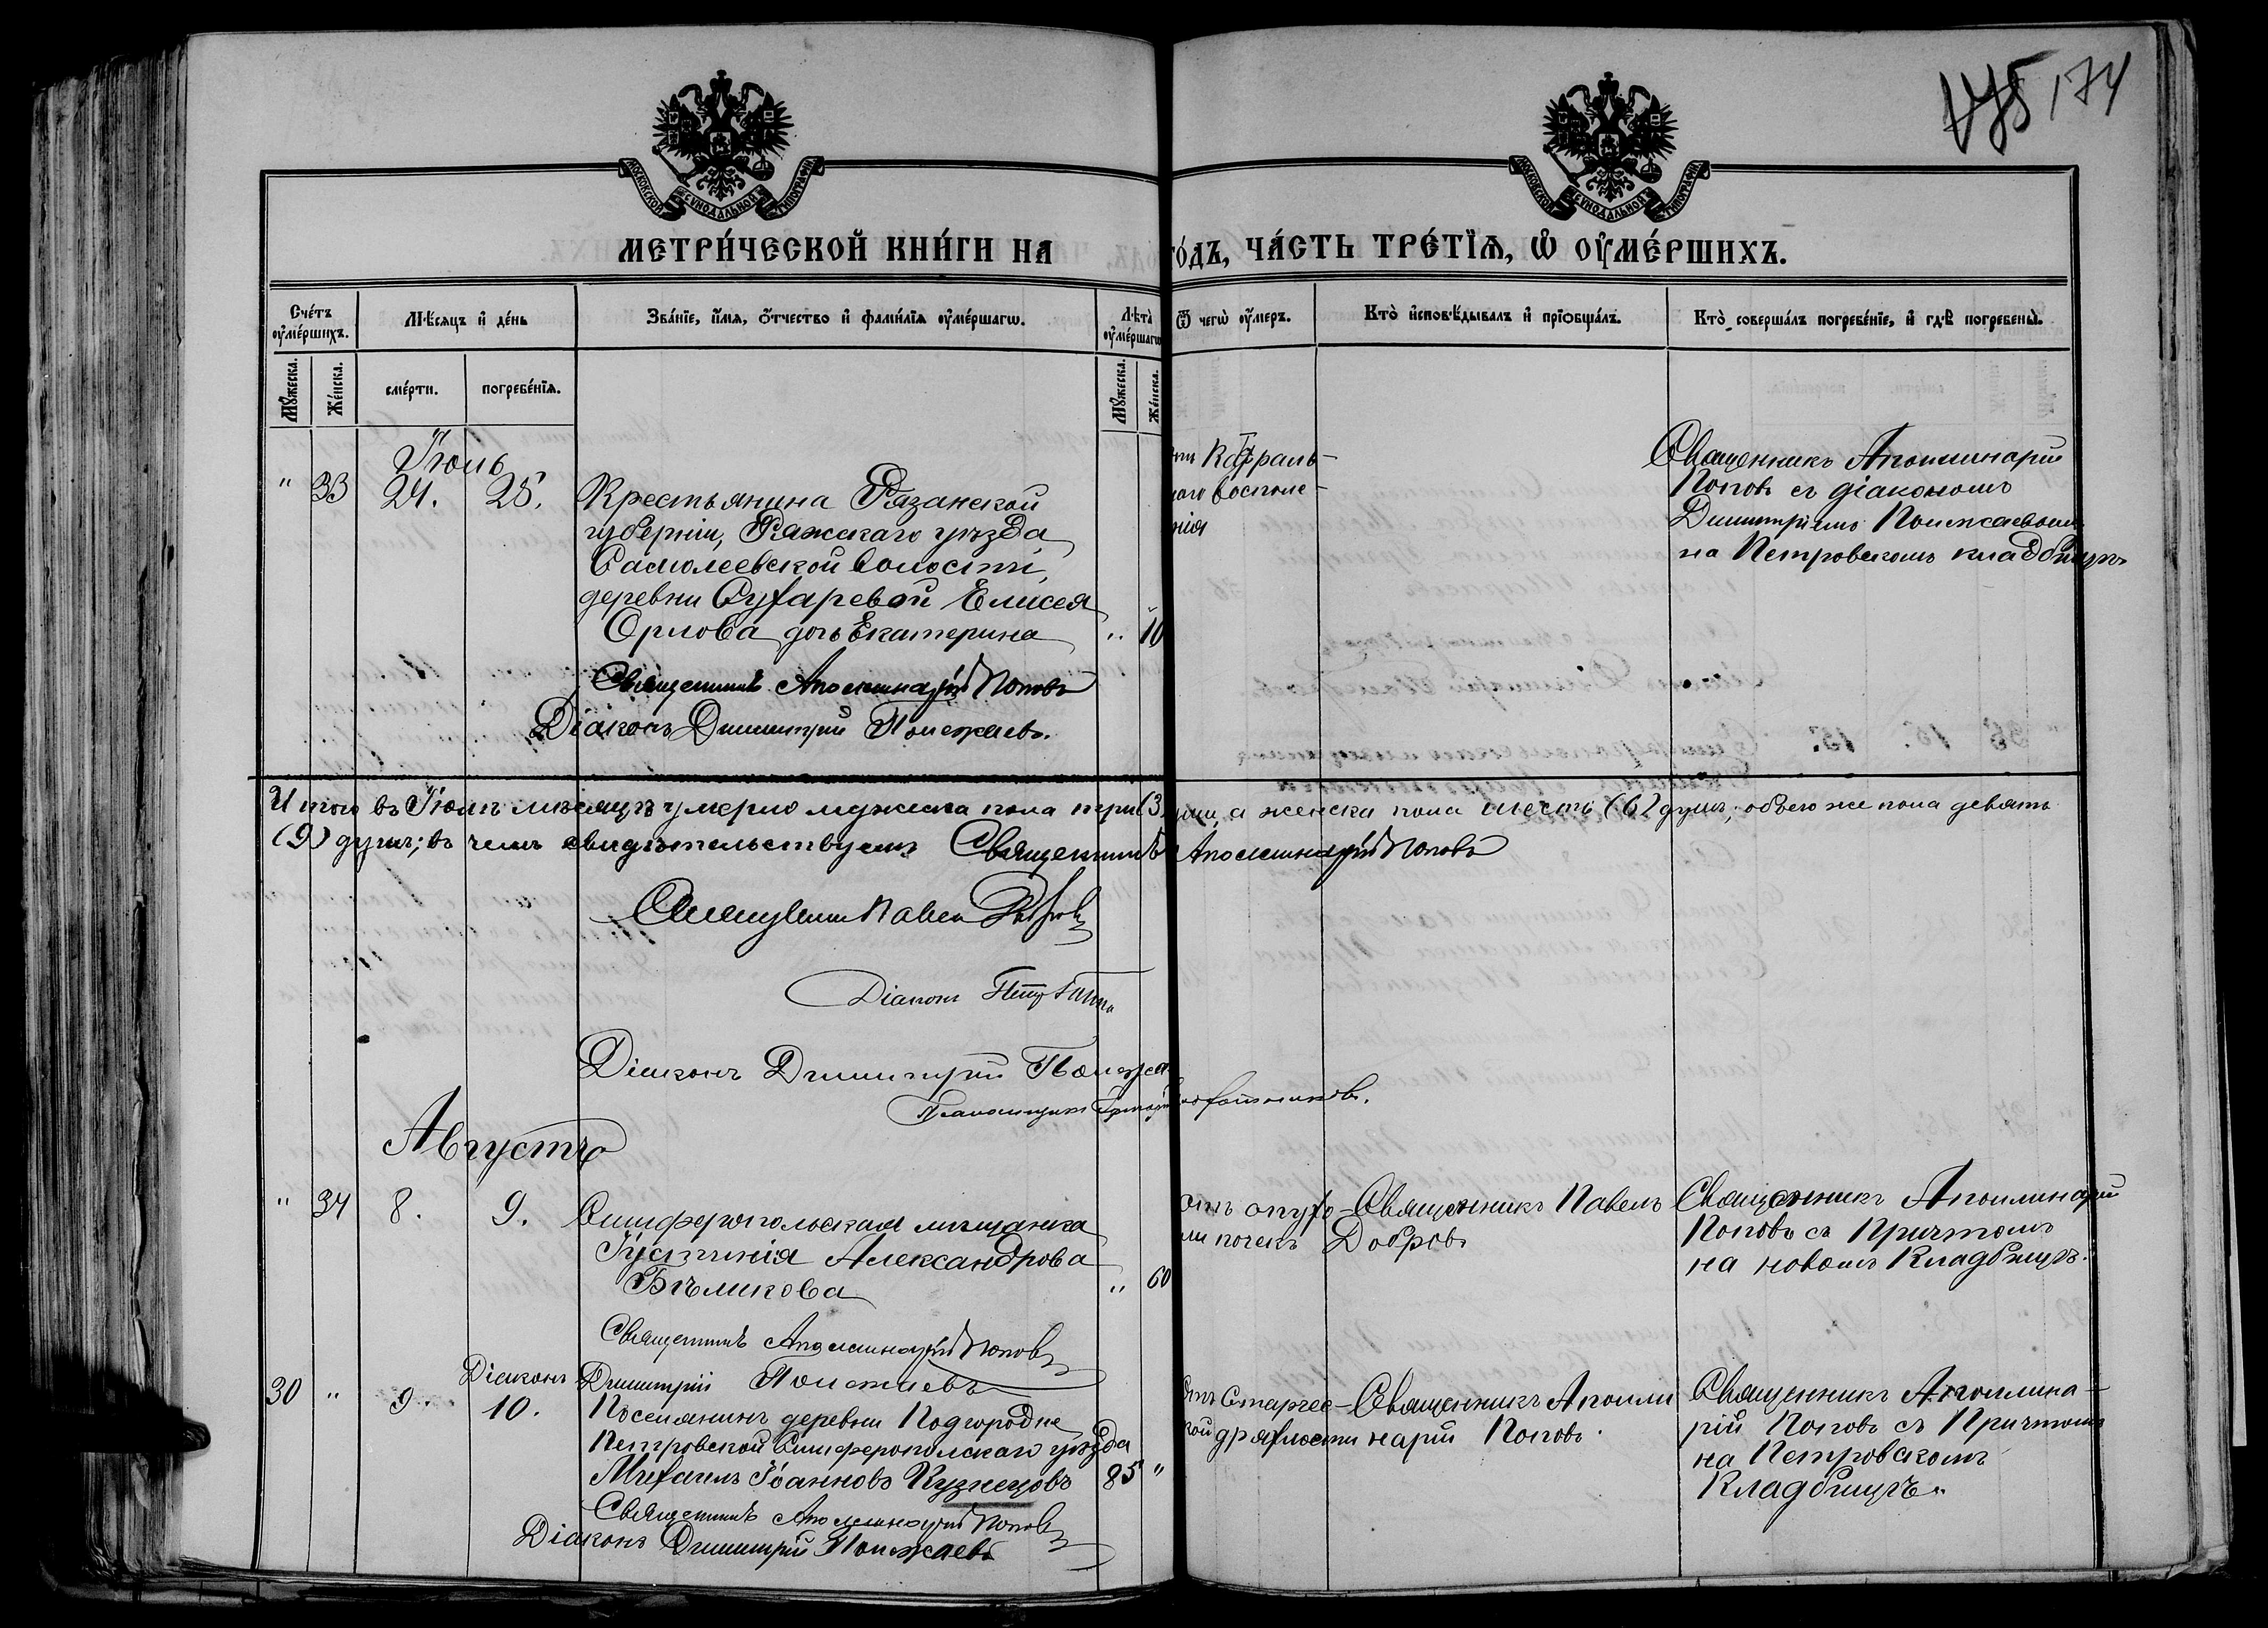 175 174
МОСКОВСКОЙ СѴНОДАЛЬНОЙ ТИПОГРАФІИ
МОСКОВСКОЙ СѴНОДАЛЬНОЙ ТИПОГРАФІИ
МЕТРИ́ЧЕСКОЙ КНИ́ГИ НА
ГО́ДЪ, ЧА́СТЬ ТРЕ́ТЇѦ, Ѿ ОУМЕ́РШИХЪ.
Сче́тъ оуме́ршихъ.
Мѣ́сѧцъ и де́нь
Зва́нїе, и́мѧ, о́тчество и фами́лїѧ оуме́ршагѡ.
Лѣта̀ оуме́ршагѡ
Ѿ чегѡ̀ оу́меръ.
Кто̀ и́сповѣ́дывалъ и прїѡбща́лъ.
Кто̀ соверша́лъ погребе́нїе, и гдѣ̀ погребены̀.
Мꙋ́жеска. Же́нска. сме́рти. погребе́нїѧ. Мꙋ́жеска. Же́нска.
Іюль
" 33 24. 25. Крестьянина Рязанской
губерніи, Ряжскаго уѣзда,
волости,
деревни Сухаревой Елисея
Орлова дочь Екатерина " 10
катраль-
наго воспале-
нія
Священникъ Аполлинарій
Поповъ съ діакономъ
Димитріемъ Поножаевымъ
на Петровскомъ кладбищѣ
Священникъ Аполлинарій Поповъ
Діаконъ Димитрій Поножаевъ.
Итого въ Іюлѣ мѣсяцѣ умерло мужеска пола три (3) души, а женска пола шесть (6) душъ; обоего же пола девять
(9) душъ; въ чемъ свидѣтельствуемъ Священникъ Аполлинарій Поповъ
Священникъ Павелъ Добровъ
Діаконъ Петръ
Діаконъ Димитрій
Псаломщикъ
Августъ
" 34 8. 9. Симферопольская мѣщанка
Іустинія Александрова
Бѣликова " 60
отъ опухо-
ли почекъ
Священникъ Павелъ
Добровъ
Священникъ Аполлинарій
Поповъ съ Причтомъ
на новомъ Кладбищѣ.
Священникъ Аполлинарій Поповъ
Діаконъ Димитрій Поножаевъ
30 " 9. 10. Поселянинъ деревни Подгородне
Петровской Симферопольскаго уѣзда
Михаилъ Іоанновъ Кузнецовъ 85 "
Отъ старчес-
кой дряхлости
Священникъ Аполли
нарій Поповъ.
Священникъ Аполлина-
рій Поповъ съ Причтомъ
на Петровскомъ
Кладбищѣ.
Священникъ Аполлинарій Поповъ
Діаконъ Димитрій Поножаевъ